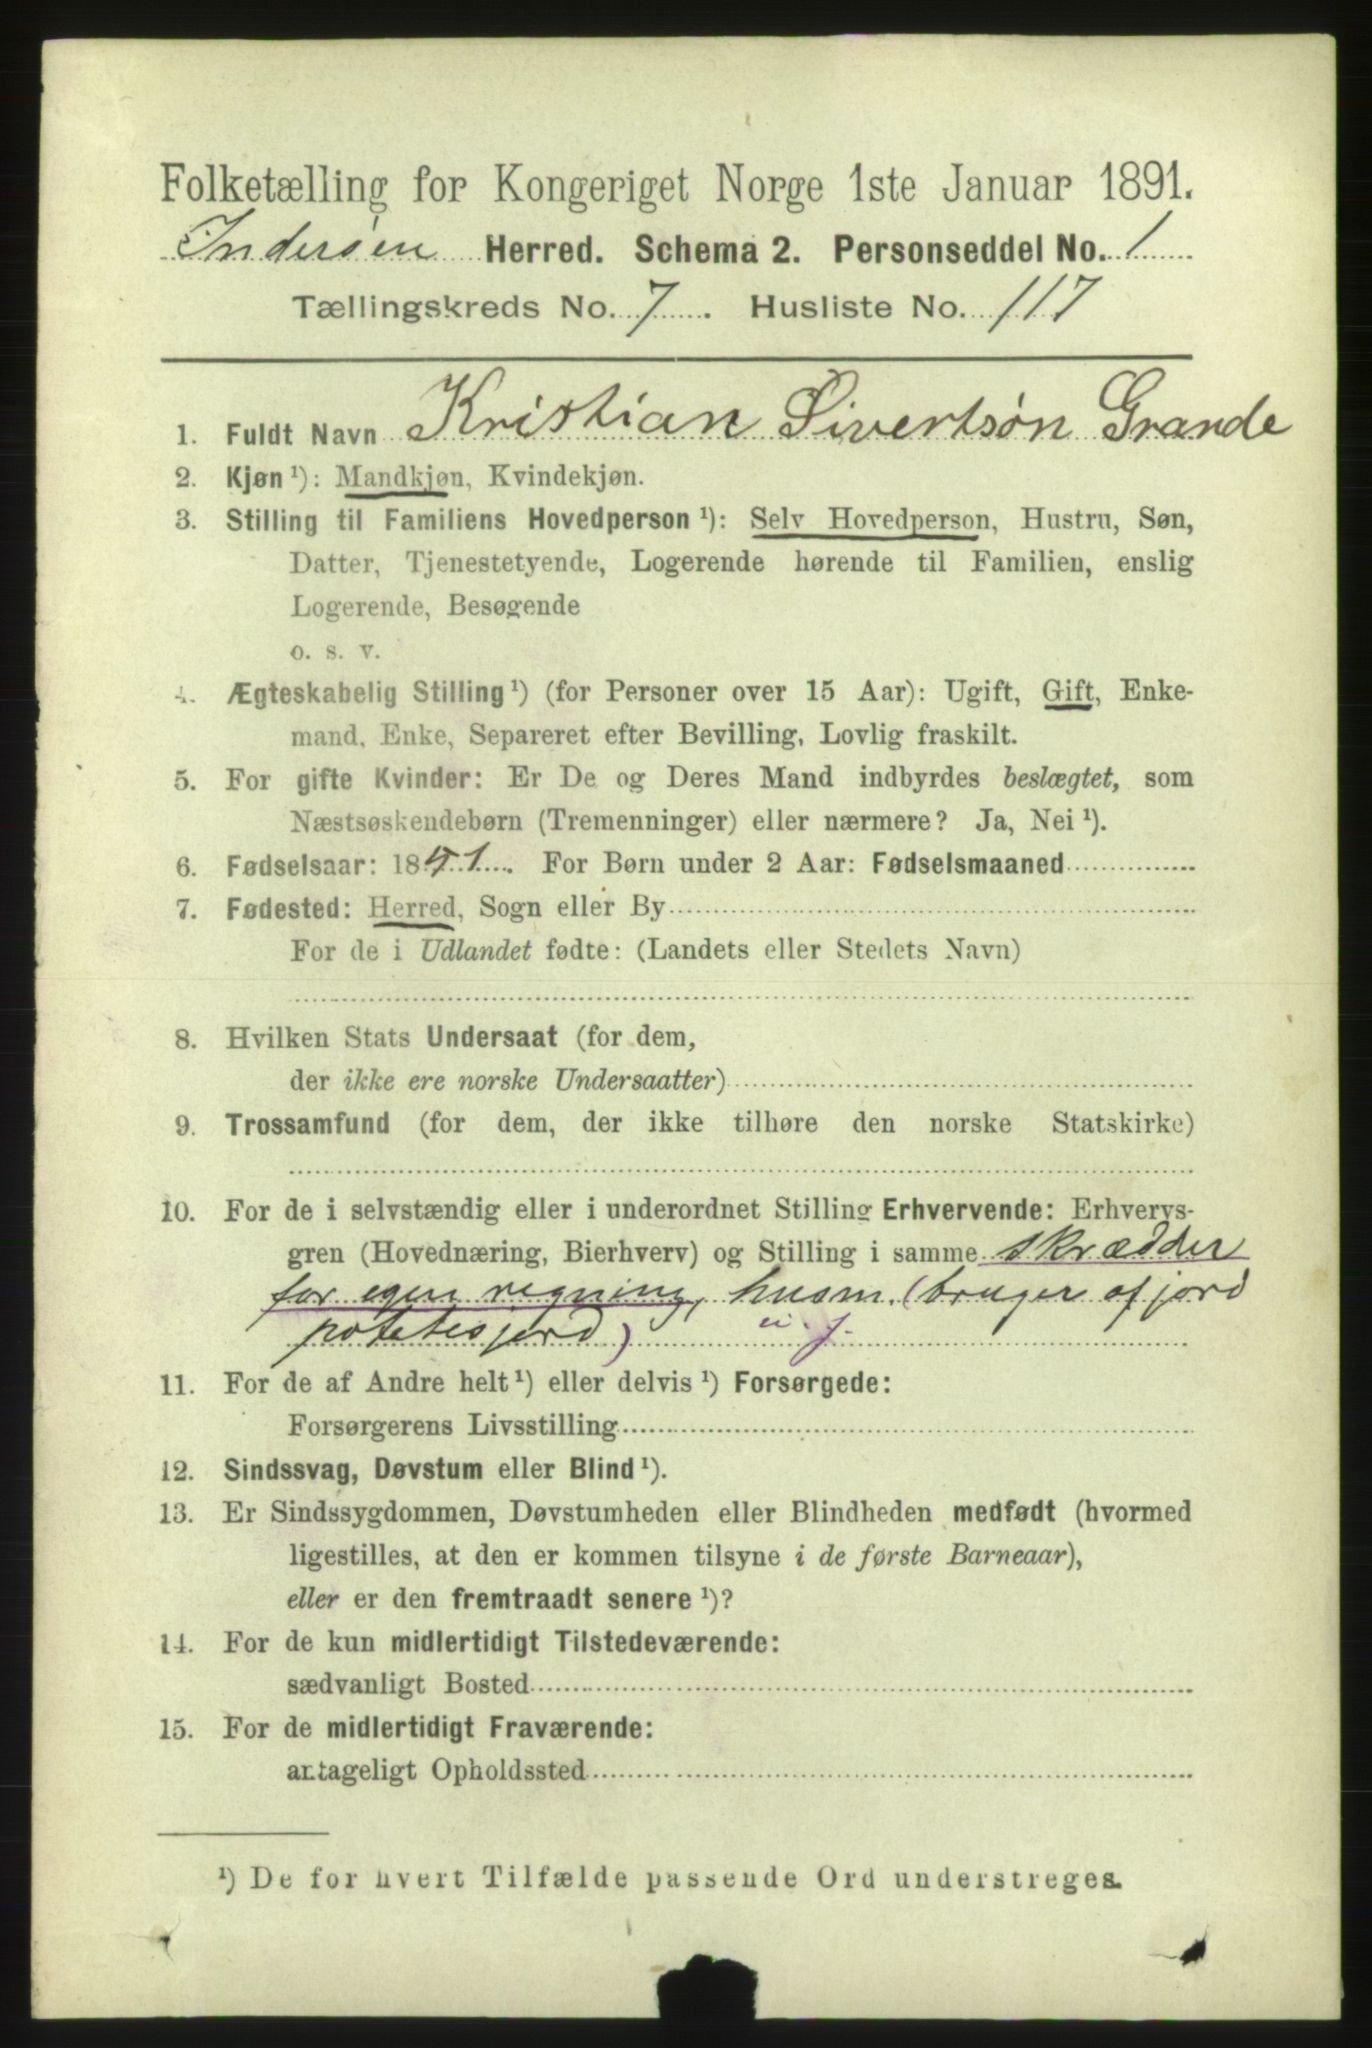 Folketælling for Kongeriget Norge 1ste Januar 1891.
Inderøen Herred. Schema 2. Personseddel No. 1
Tællingskreds No. 7. Husliste No. 117
1. Fuldt Navn Kristian Sivertsøn Grande
2. Kjøn ¹): Mandkjøn, Kvindekjøn.
3. Stilling til Familiens Hovedperson ¹): Selv Hovedperson, Hustru, Søn,
Datter, Tjenestetyende, Logerende hørende til Familien, enslig
Logerende, Besøgende
o. s. v.
4. Ægteskabelig Stilling ¹) (for Personer over 15 Aar): Ugift, Gift, Enke-
mand, Enke, Separeret efter Bevilling, Lovlig fraskilt.
5. For gifte Kvinder: Er De og Deres Mand indbyrdes beslægtet, som
Næstsøskendebørn (Tremenninger) eller nærmere? Ja, Nei ¹).
6. Fødselsaar: 1841. For Børn under 2 Aar: Fødselsmaaned
7. Fødested: Herred, Sogn eller By
For de i Udlandet fødte: (Landets eller Stedets Navn)
8. Hvilken Stats Undersaat (for dem,
der ikke ere norske Undersaatter)
9. Trossamfund (for dem, der ikke tilhøre den norske Statskirke)
10. For de i selvstændig eller i underordnet Stilling Erhvervende: Erhvervs-
gren (Hovednæring, Bierhverv) og Stilling i samme skrædder
for egen regning, husm. (bruger af jord
potetesjord) u. j.
11. For de af Andre helt ¹) eller delvis ¹) Forsørgede:
Forsørgerens Livsstilling
12. Sindssvag, Døvstum eller Blind ¹).
13. Er Sindssygdommen, Døvstumheden eller Blindheden medfødt (hvormed
ligestilles, at den er kommen tilsyne i de første Barneaar),
eller er den fremtraadt senere ¹)?
14. For de kun midlertidigt Tilstedeværende:
sædvanligt Bosted
15. For de midlertidigt Fraværende:
antageligt Opholdssted
¹) De for hvert Tilfælde passende Ord understreges.